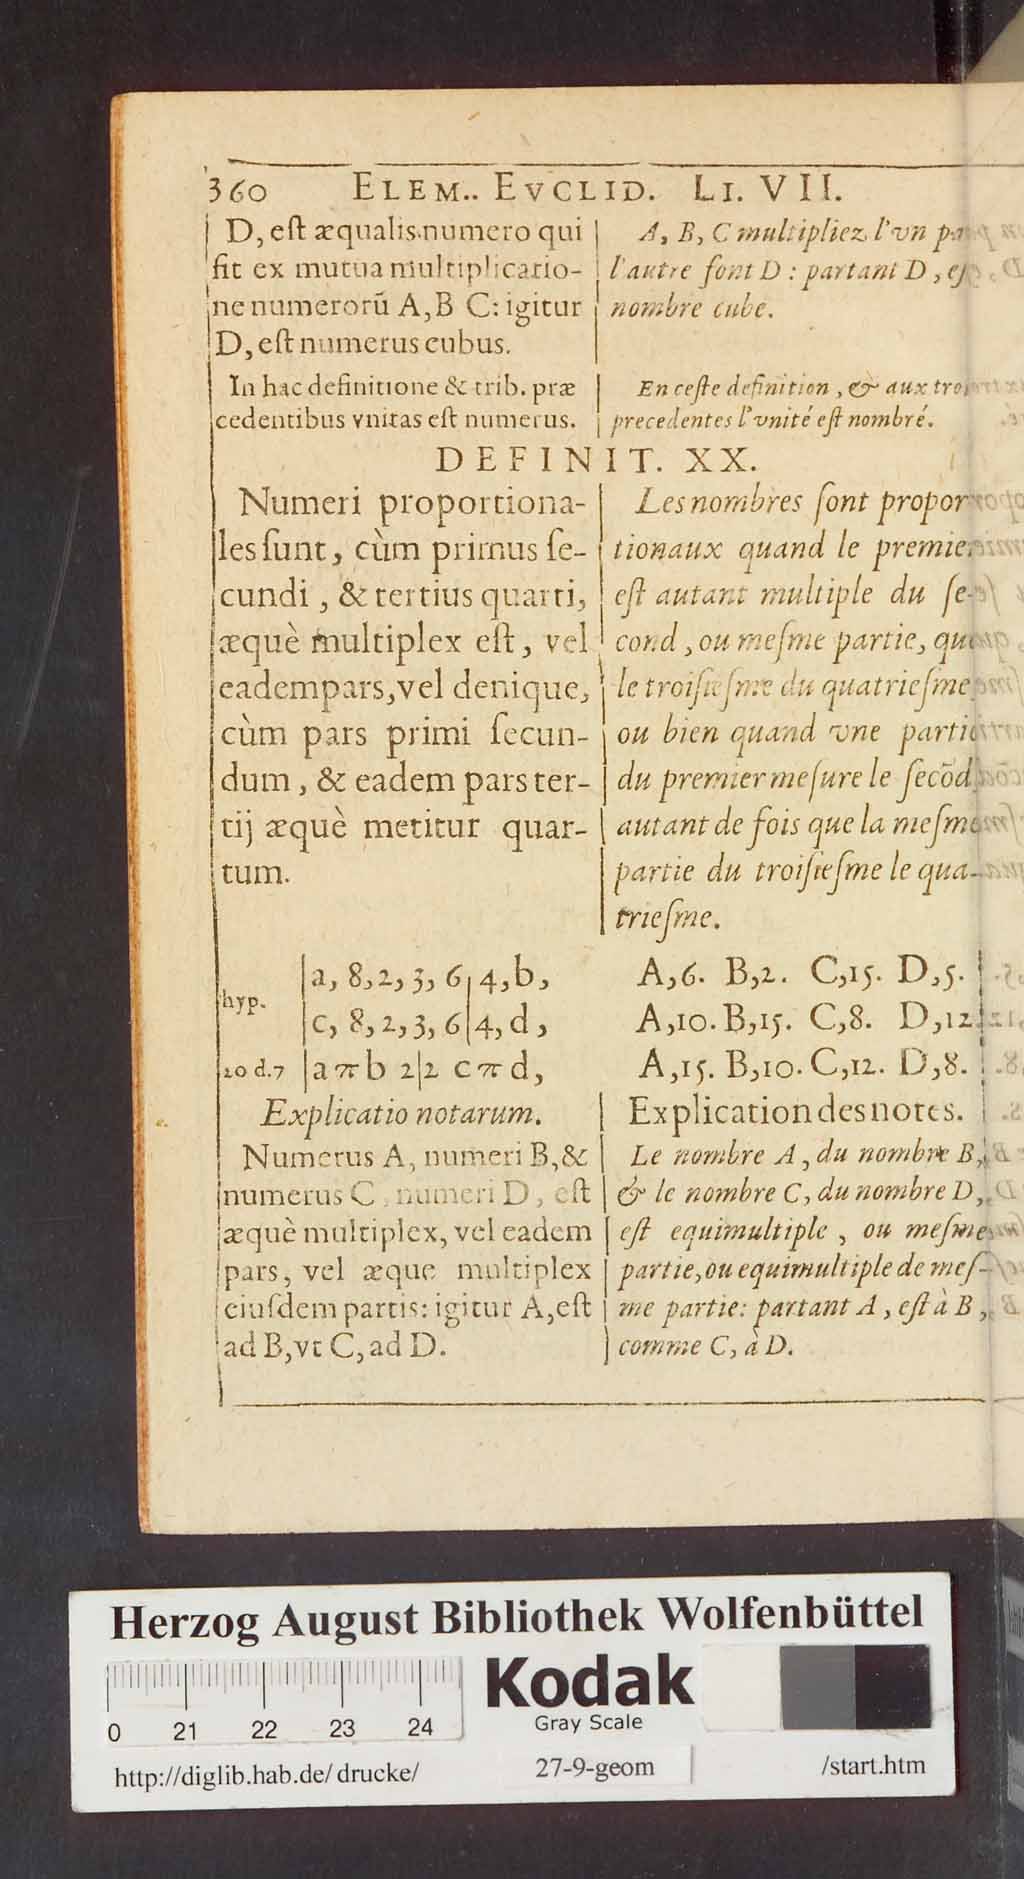 360 ELEM.. EVCLID. LI. VII.
D, eſt æqualis numero qui
fit ex mutua multiplicatio-
ne numerorū A,B C: igitur
D, eſt numerus cubus.
In hac definitione & trib. præ
cedentibus vnitas eſt numerus.
A, B, C multipliez l'vn par
l'autre font D : partant D, eſt
nombre cube.
En ceſte definition, & aux trois
precedentes l'vnité eſt nombré.
DEFINIT. XX.
Numeri proportiona-
les ſunt, cùm primus ſe-
cundi, & tertius quarti,
æquè multiplex eſt, vel
eadem pars, vel denique,
cùm pars primi ſecun-
dum, & eadem pars ter-
tij æquè metitur quar-
tum.
Les nombres ſont propor
tionaux quand le premier
eſt autant multiple du ſe-
cond, ou meſme partie, que
le troiſieſme du quatrieſme
ou bien quand vne partie
du premier meſure le ſecõd
autant de fois que la meſme
partie du troiſieſme le qua-
trieſme.
hyp. |a, 8,2, 3, 6|4,b,
|c, 8,2,3, 6|4, d,
20 d.7 |a π b 2|2 c π d,
A,6. B,2. C,15. D,5.
A,10. B,15. C,8. D,12.
A,15. B,10. C,12. D,8.
Explicatio notarum.
Numerus A, numeri B, &
numerus C, numeri D, eſt
æquè multiplex, vel eadem
pars, vel æque multiplex
eiuſdem partis: igitur A, eſt
ad B, vt C, ad D.
Explication des notes.
Le nombre A, du nombre B,
& le nombre C, du nombre D,
eſt equimultiple, ou meſme
partie, ou equimultiple de meſ-
me partie: partant A, eſt à B,
comme C, à D.
Herzog August Bibliothek Wolfenbüttel
Kodak
Gray Scale
0 21 22 23 24
http://diglib.hab.de/drucke/ 27-9-geom /start.htm